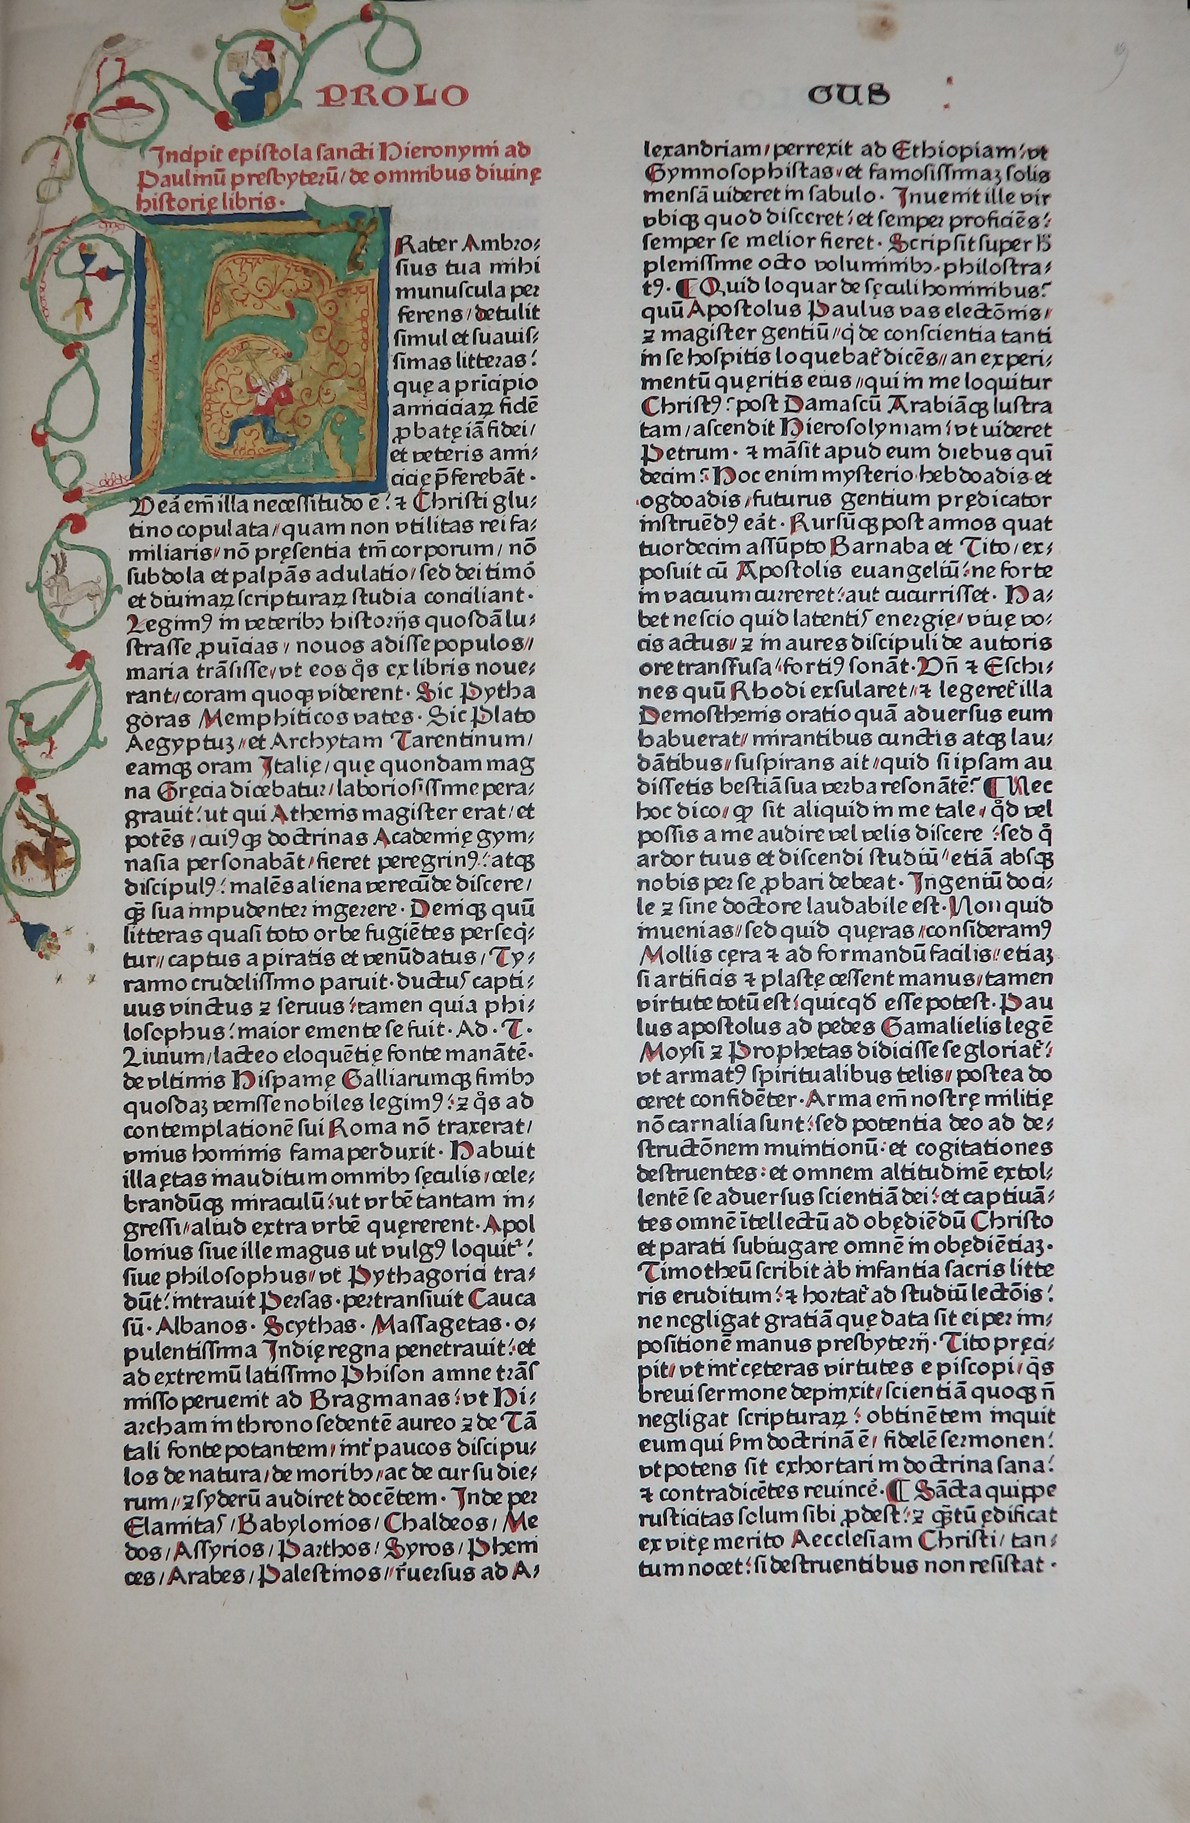 PROLO
GUS
Incipit epistola sancti Hieronymi ad
Paulinū presbyterū/ de omnibus diuinę
historię libris.
Rater Ambro⸗
sius tua mihi
munuscula per
ferens/ detulit
simul et suauis⸗
simas litteras:
que a pricipio
amiciciaꝝ fidē
ꝓbatę iā fidei/
et veteris ami⸗
cicię p̄ferebāt.
Veá em̄ illa necessitudo ē: ⁊ Christi glu⸗
tino copulata/ quam non vtilitas rei fa⸗
miliaris/ nō pręsentia tm̄ corporum/ nō
subdola et palpās adulatio/ sed dei timó
et diuinaꝝ scripturaꝝ studia conciliant.
Legimꝰ in veteribꝫ historijs quosdā lu⸗
strasse ꝓuīcias/ nouos adisse populos/
maria trāsisse/ vt eos q̄s ex libris noue⸗
rant/ coram quoqꝫ viderent. Sic Pytha
goras Memphiticos vates. Sic Plato
Aegyptuꝫ/ et Archytam Tarentinum/
eamqꝫ oram Italię/ que quondam mag
na Gręcia dicebatur/ laboriosissime pera⸗
grauit: ut qui Athenis magister erat/ et
potēs/ cuiꝰqꝫ doctrinas Academię gym⸗
nasia personabāt/ fieret peregrinꝰ: atqꝫ
discipulꝰ: malēs aliena verecūde discere/
qꝫ̄ sua impudenter ingerere. Deniqꝫ quū
litteras quasi toto orbe fugiētes perseq̄⸗
tur/ captus a piratis et venūdatus/ Ty⸗
ranno crudelissimo paruit. ductus capti⸗
uus vinctus ⁊ seruus: tamen quia phi⸗
losophus: maior emente se fuit. Ad. T.
Liuium/ lacteo eloquētię fonte manātē.
de vltimis Hispanię Galliarumqꝫ finibꝫ
quosdaꝫ venisse nobiles legimꝰ: ⁊ q̄s ad
contemplationē sui Roma nō traxerat/
vnius hominis fama perduxit. Habuit
illa ętas inauditum omnibꝫ sęculis/ cele⸗
brandūqꝫ miraculū: ut vrbē tantam in⸗
gressi/ aliud extra vrbē quęrerent. Apol
lonius siue ille magus ut vulgꝰ loquit̄:
siue philosophus/ vt Pythagorici tra⸗
dūt: intrauit Persas. pertransiuit Cauca
sū. Albanos. Scythas. Massagetas. o⸗
pulentissima Indię regna penetrauit: et
ad extremū latissimo Phison amne trās
misso peruenit ad Bragmanas: vt Hi⸗
archam in throno sedentē aureo ⁊ de Tā
tali fonte potantem/ int̄ paucos discipu⸗
los de natura/ de moribꝫ/ ac de cursu die⸗
rum/ ⁊ syderū audiret docētem. Inde per
Elamitas/ Babylonios/ Chaldeos/ Me
dos/ Assyrios/ Parthos/ Syros/ Pheni
ces/ Arabes/ Palestinos/ r̄uersus ad A⸗
lexandriam/ perrexit ad Ethiopiam: vt
Gymnosophistas/ et famosissimaꝫ solis
mensā uideret in sabulo. Inuenit ille vir
vbiqꝫ quod disceret: et semper proficiēs:
semper se melior fieret. Scripsit super h̄
plenissime octo voluminibꝫ. philostra⸗
tꝰ. ¶ Quid loquar de sęculi hominibus?
quū Apostolus Paulus vas electōnis/
⁊ magister gentiū/ q̇ de conscientia tanti
in se hospitis loquebat̄ dicēs/ an experi⸗
mentū quęritis eius/ qui in me loquitur
Christꝰ? post Damascū Arabiāqꝫ lustra
tam/ ascendit Hierosolymam: vt uideret
Petrum. ⁊ māsit apud eum diebus qui
decim: Hoc enim mysterio hebdoadis et
ogdoadis/ futurus gentium prędicator
instruēdꝰ eát. Rursūqꝫ post annos quat
tuordecim assūpto Barnaba et Tito/ ex⸗
posuit cū Apostolis euangeliū: ne forte
in vacuum curreret: aut cucurrisset. Ha⸗
bet nescio quid latentis energię/ viuę vo⸗
cis actus/ ⁊ in aures discipuli de autoris
ore transfusa/ fortiꝰ sonāt. Vn̄ ⁊ Eschi⸗
nes quū Rhodi exsularet/ ⁊ legeret̄ illa
Demosthenis oratio quā aduersus eum
habuerat/ mirantibus cunctis atqꝫ lau⸗
dātibus/ suspirans ait/ quid si ipsam au
dissetis bestiā sua verba resonātē? ¶ Nec
hoc dico/ ꝙ sit aliquid in me tale/ q̊d vel
possis a me audire vel velis discere: sed q̇
ardor tuus et discendi studiū/ etiā absqꝫ
nobis per se ꝓbari debeat. Ingeniū doci⸗
le ⁊ sine doctore laudabile est. Non quid
inuenias/ sed quid quęras/ consideramꝰ
Mollis cęra ⁊ ad formandū facilis/ etiaꝫ
si artificis ⁊ plastę cessent manus/ tamen
virtute totū est: quicqd̄ esse potest. Pau
lus apostolus ad pedes Gamalielis legē
Moysi ⁊ Prophetas didicisse se gloriat̄:
vt armatꝰ spiritualibus telis/ postea do
ceret confidēter. Arma em̄ nostrę militię
nō carnalia sunt: sed potentia deo ad de⸗
structōnem munitionū: et cogitationes
destruentes: et omnem altitudinē extol⸗
lentē se aduersus scientiā dei: et captiuā⸗
tes omnē ītellectū ad obędiēdū Christo
et parati subiugare omnē in obędiētiaꝫ.
Timotheū scribit ab infantia sacris litte
ris eruditum: ⁊ hortat̄ ad studiū lectōis:
ne negligat gratiā que data sit ei per im⸗
positionē manus presbyterij. Tito pręci⸗
pit/ vt int̄ cęteras virtutes episcopi/ q̄s
breui sermone depinxit/ scientiā quoqꝫ n̄
negligat scripturaꝝ: obtinētem inquit
eum qui ẜm doctrinā ē/ fidelē sermonen:
vt potens sit exhortari in doctrina sana:
⁊ contradicētes reuincē. ¶ Sācta quippe
rusticitas solum sibi ꝓdest: ⁊ qꝫ̄tū ędificat
ex vitę merito Aecclesiam Christi/ tan⸗
tum nocet: si destruentibus non resistat.